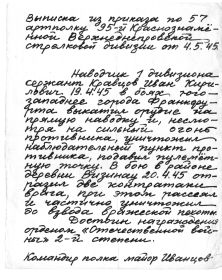 Выписка из приказа по 57
артполку 95-й Краснознамён-
ной Верхнеднепровской
стрелковой дивизии от 4.5.45.
Наводчик 1 дивизиона
сержант Кравцов Иван Кири-
лович 19.4.45 в боях юго-
западнее города Франкфу-
рта выкатил орудие на
прямую наводку и, несмо-
тря на сильный огонь
противника, уничтожил
наблюдательный пункт про-
тивника, подавил пулемёт-
ную точку. В бою в районе
деревни 20.4.45 от-
разил две контратаки
врага, при этом рассеял
и частично уничтожил
до взвода вражеской пехоты.
Достоин награждения
орденом «Отечественной вой-
ны» 2-й степени.
Командир полка майор Иванцов.